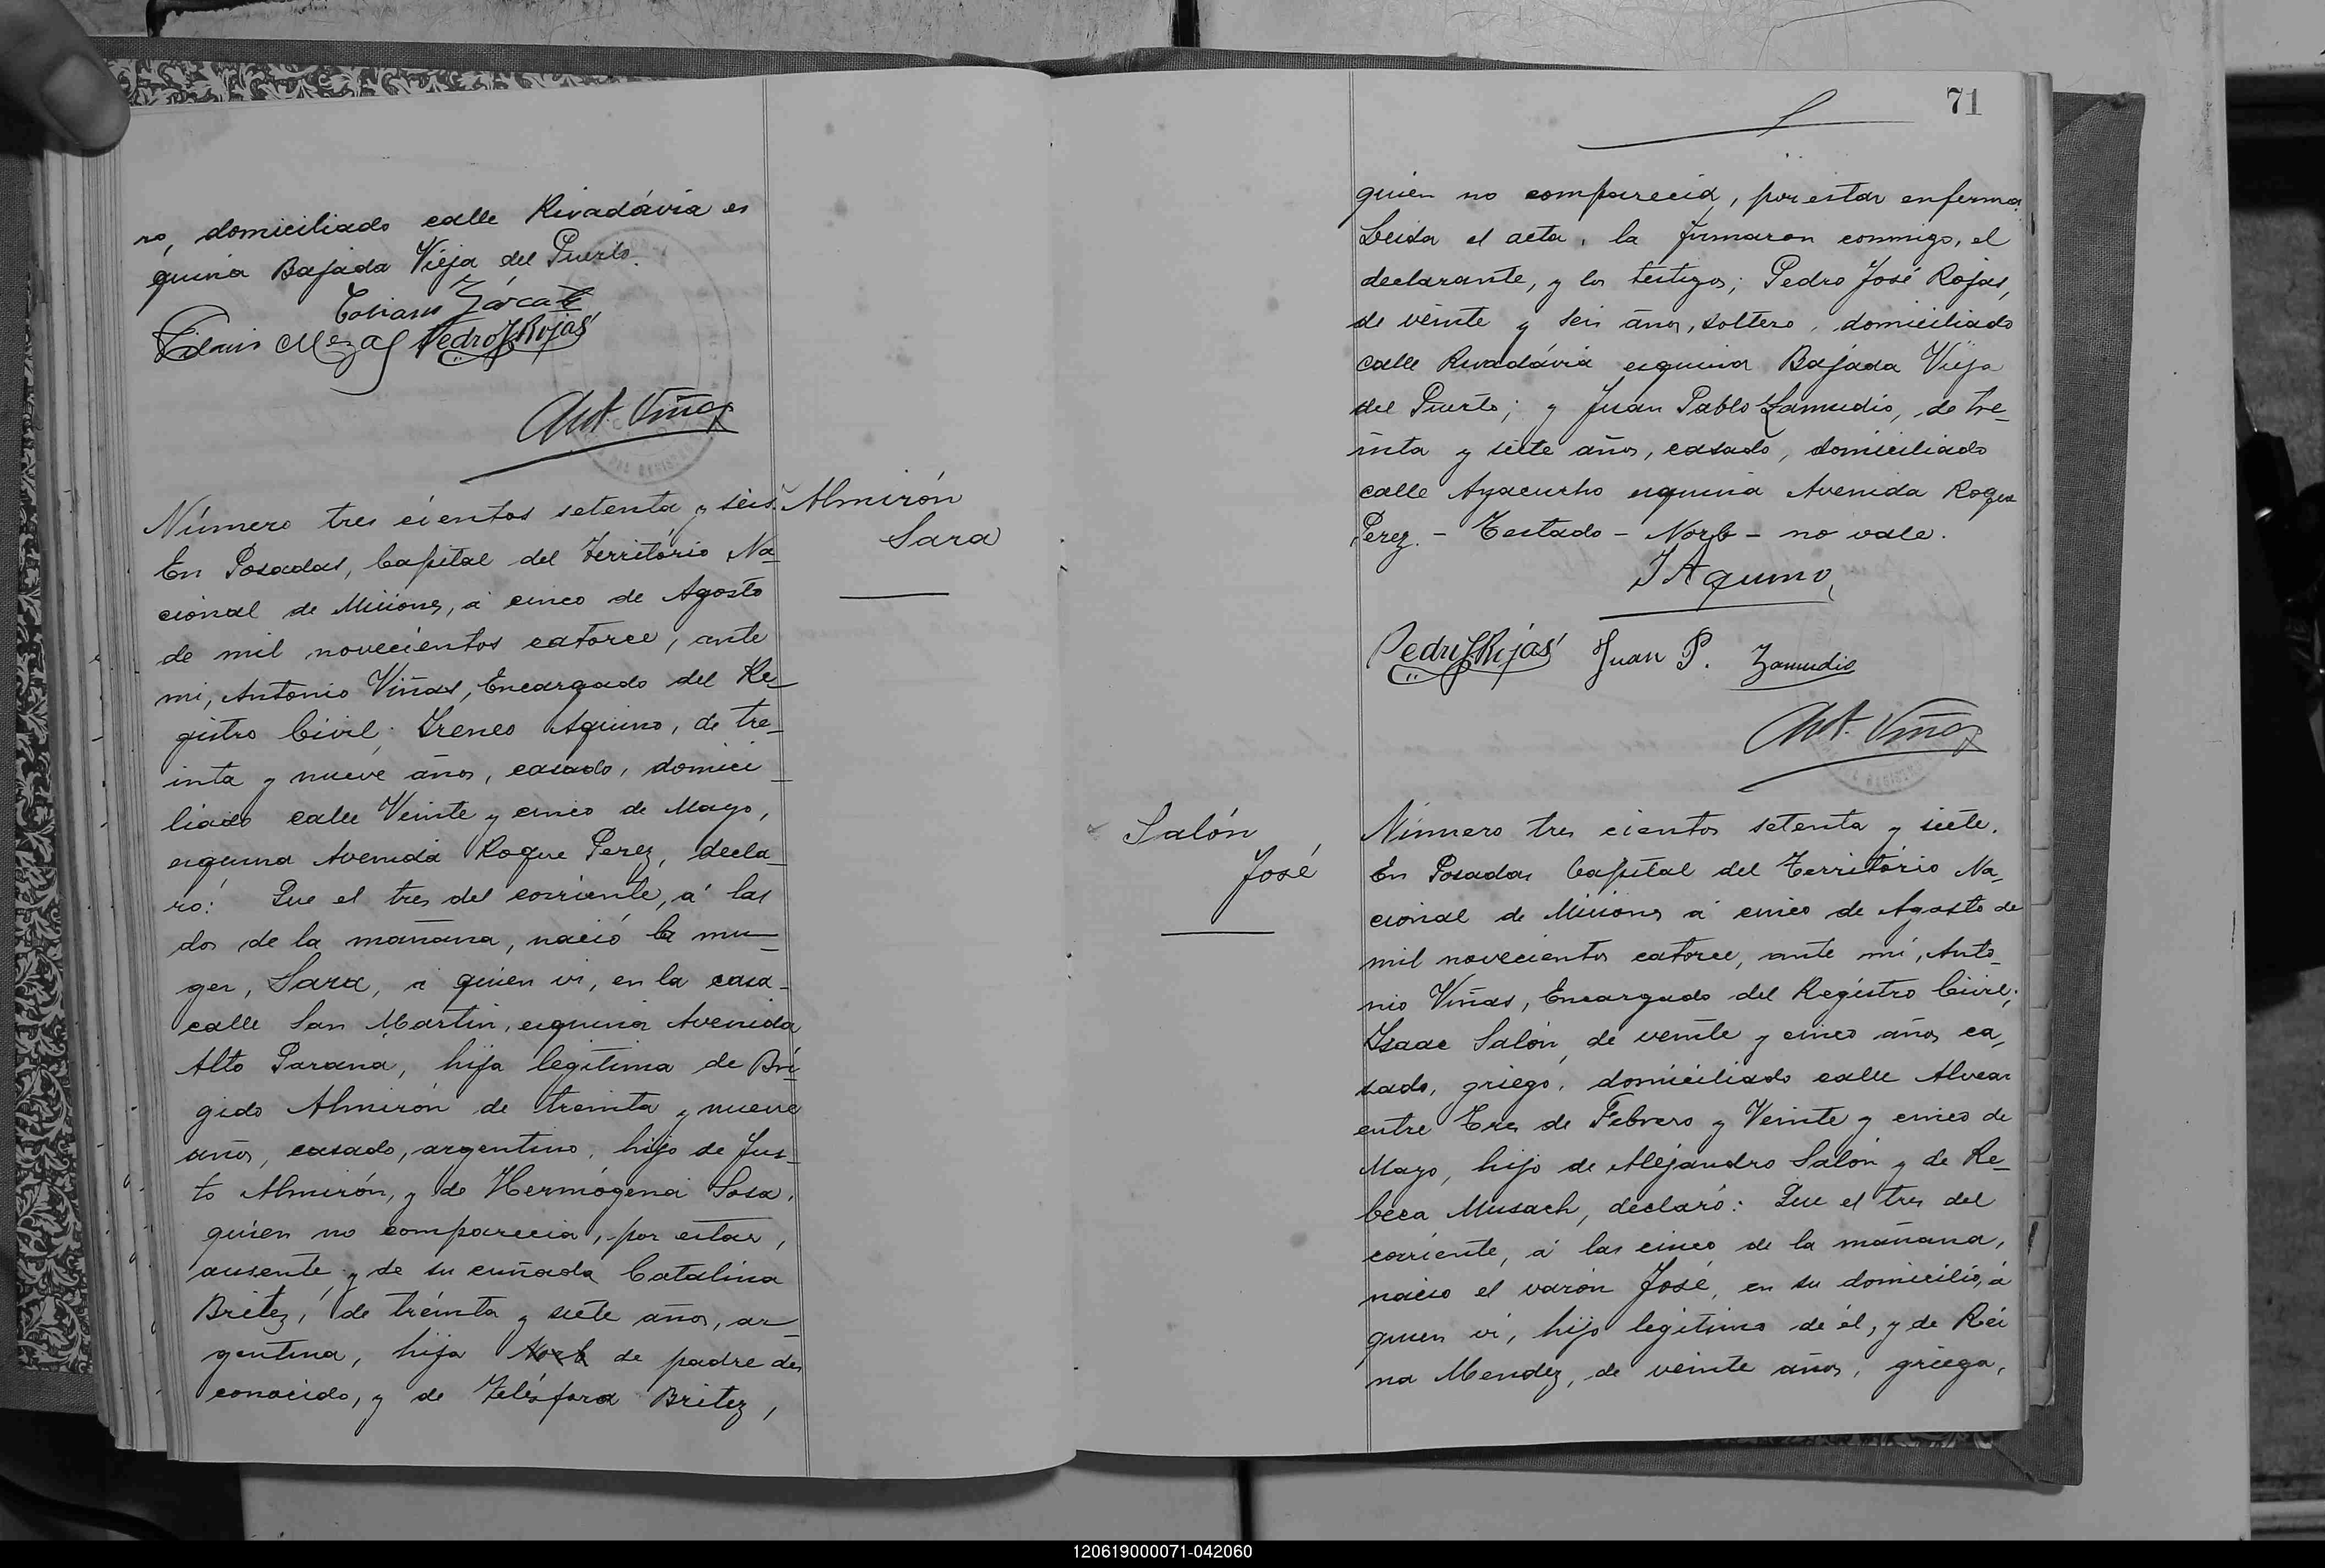 ro, domiciliado calle Rivadávia es
quina Bajada Vieja del Puerto.
Zárate
Meza Pedro J Rojas
Ant. Viñas
Número tres cientos setenta y seis.
Almirón
Sara
En Posadas, Capital del Território Na_
cional de Misiones, á cinco de Agosto
de mil novecientos catorce, ante
mi, Antonio Viñas, Encargado del Re_
gistro Civil; Ireneo Aquino, de tre_
inta y nueve años, casado, domici_
liado calle Veinte y cinco de Mayo,
esquina Avenida Roque Perez, decla_
ró: Que el tres del corriente, á las
dos de la mañana, nació la mu_
ger, Sara, á quien vi, en la casa_
calle San Martin, esquina Avenida
Alto Paraná, hija legítima de Bri_
gido Almirón de treinta y nueve
años, casado, argentino, hijo de Jus_
to Almirón, y de Hermógena Sosa,
quien no comparecia, por estar,
ausente; y de su cuñada Catalina
Britez, de treinta y siete años, ar_
gentina, hija Norb de padre des
conocido, y de Telésfora Britez,
71
quien no comparecia, por estar enferma.
Leida el acta, la firmaron conmigo, el
declarante, y los testigos; Pedro José Rojas,
de veinte y seis años, soltero, domiciliado
calle Rivadávia esquina Bajada Vieja
del Puerto; y Juan Pablo Zamudio, de tre_
inta y siete años, casado, domiciliado
calle Ayacucho esquina Avenida Roque
Perez. - Testado - Norb - no vale.
I Aquino
Pedro J Rojas Juan P. Zamudio
Ant. Viñas
Salón
José
Número tres cientos setenta y siete.
En Posadas Capital del Território Na_
cional de Misiones á cinco de Agosto de
mil novecientos catorce, ante mi, Anto_
nio Viñas, Encargado del Registro Civil;
Isaac Salón, de veinte y cinco años ca_
sado, griego, domiciliado calle Alvear
entre Tres de Febrero y Veinte y cinco de
Mayo, hijo de Alejandro Salón y de Re_
beca Musach, declaró: Que el tres del
corriente, á las cinco de la mañana,
nació el varón José, en su domicilio, á
quien vi, hijo legítimo de él, y de Rei
na Mendez, de veinte años, griega,
120619000071-042060